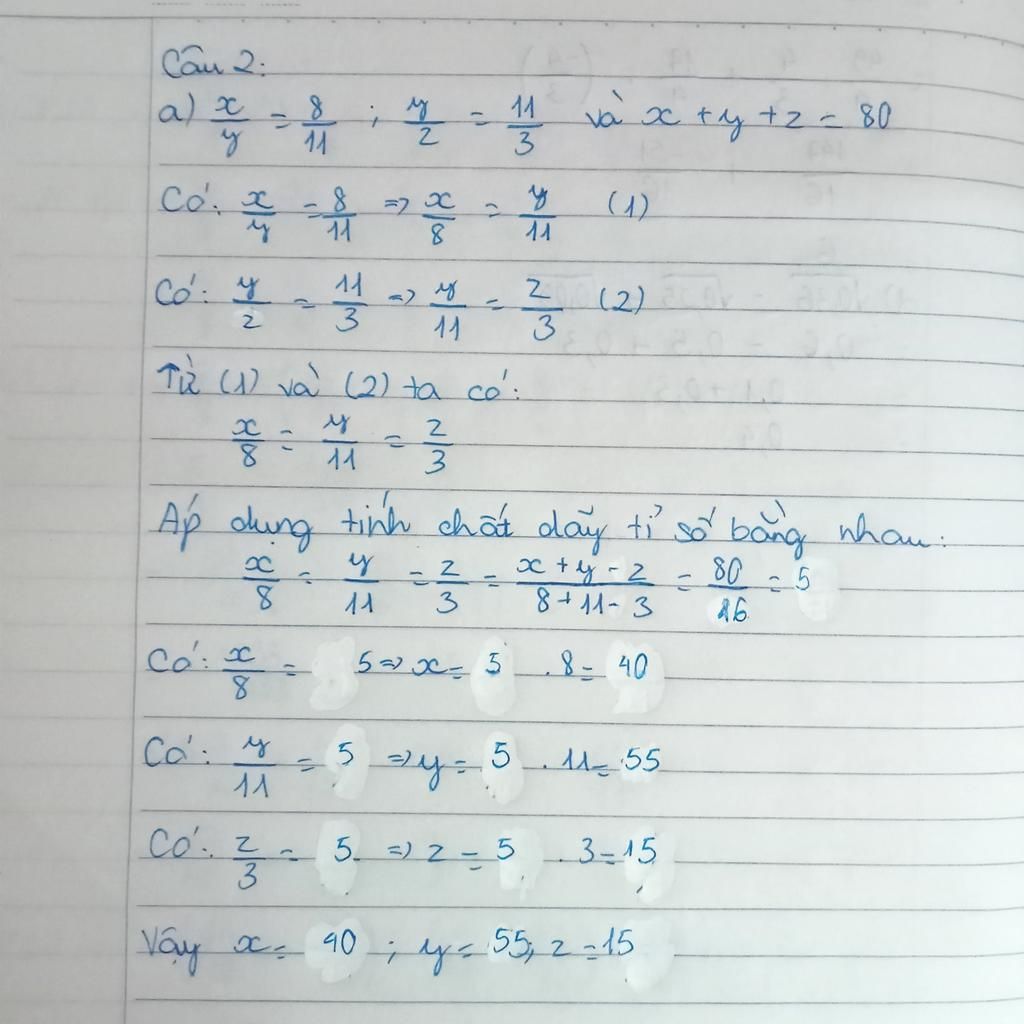 Câu 2:
a) x/y = 8/11 ; y/z = 11/3 và x + y + z = 80
Có: x/y = 8/11 => x/8 = y/11 (1)
Có: y/z = 11/3 => y/11 = z/3 (2)
Từ (1) và (2) ta có:
x/8 = y/11 = z/3
Áp dụng tính chất dãy tỉ số bằng nhau:
x/8 = y/11 = z/3 = (x + y - z)/(8 + 11 - 3) = 80/16 = 5
Có: x/8 = 5 => x = 5 . 8 = 40
Có: y/11 = 5 => y = 5 . 11 = 55
Có: z/3 = 5 => z = 5 . 3 = 15
Vậy x = 40 ; y = 55; z = 15